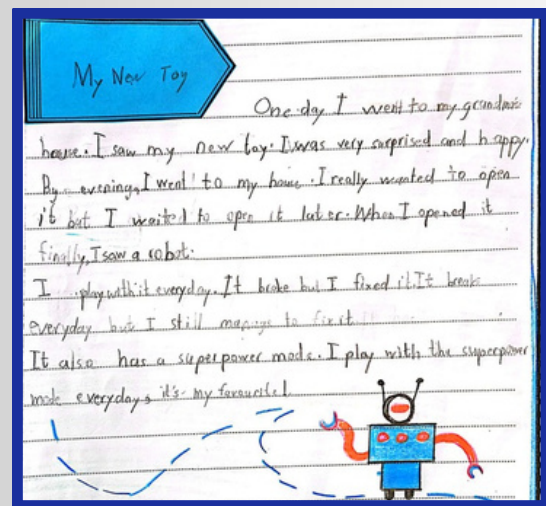 My New Toy
One day I went to my grandma's
house. I saw my new toy. I was very surprised and happy.
By evening, I went to my house. I really wanted to open
it but I waited to open it later. When I opened it
finally, I saw a robot.
I play with it everyday. It broke but I fixed it. It breaks
everyday but I still manage to fix it.
It also has a superpower mode. I play with the superpower
mode everyday, it's my favourite!